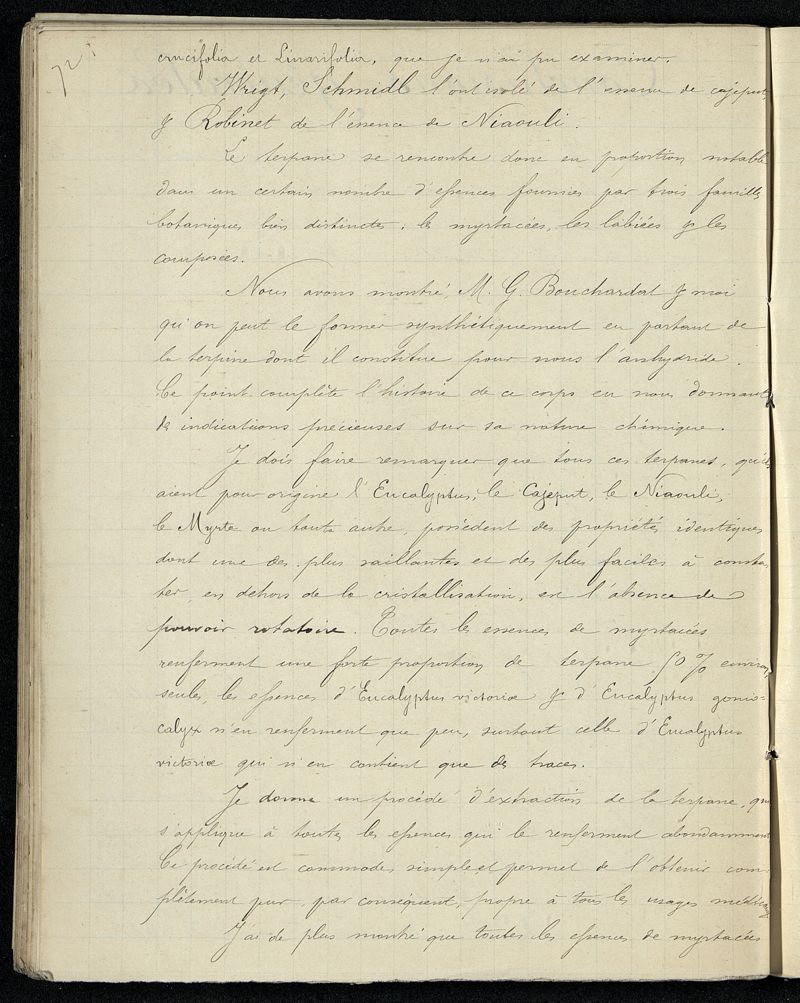 72
crucifolia et Linarifolia, que je n'ai pu examiner.
Wrigt, Schmidl l'ont isolé de l'essence de cajeput,
& Robinet de l'essence de Niaouli.
Le terpane se rencontre donc en proportion notable
dans un certain nombre d'essences fournies par trois familles
botaniques bien distinctes, les myrtacées, les labiées & les
composées.
Nous avons montré, M. G. Bouchardat & moi
qu'on peut le former synthétiquement en partant de
la terpine dont il constitue pour nous l'anhydride.
Ce point complète l'histoire de ce corps en nous donnant
des indications précieuses sur sa nature chimique.
Je dois faire remarquer que tous ces terpanes, qu'ils
aient pour origine l'Eucalyptus, le Cajeput, le Niaouli,
le Myrte ou toute autre, possèdent des propriétés identiques
dont une des plus saillantes et des plus faciles à consta
ter, en dehors de la cristallisation, est l'absence de
pouvoir rotatoire. Toutes les essences de myrtacées
renferment une forte proportion de terpane 50% environ,
seules, les essences d'Eucalyptus victoriæ & d'Eucalyptus gonio=
calyx n'en renferment que peu, surtout celle d'Eucalyptus
victoriæ qui n'en contient que des traces.
Je donne un procédé d'extraction de la terpane, qui
s'applique à toutes les essences qui le renferment abondamment
Ce procédé est commode, simple et permet de l'obtenir com
plètement pur, par conséquent, propre à tous les usages médicaux
J'ai de plus montré que toutes les essences de myrtacées